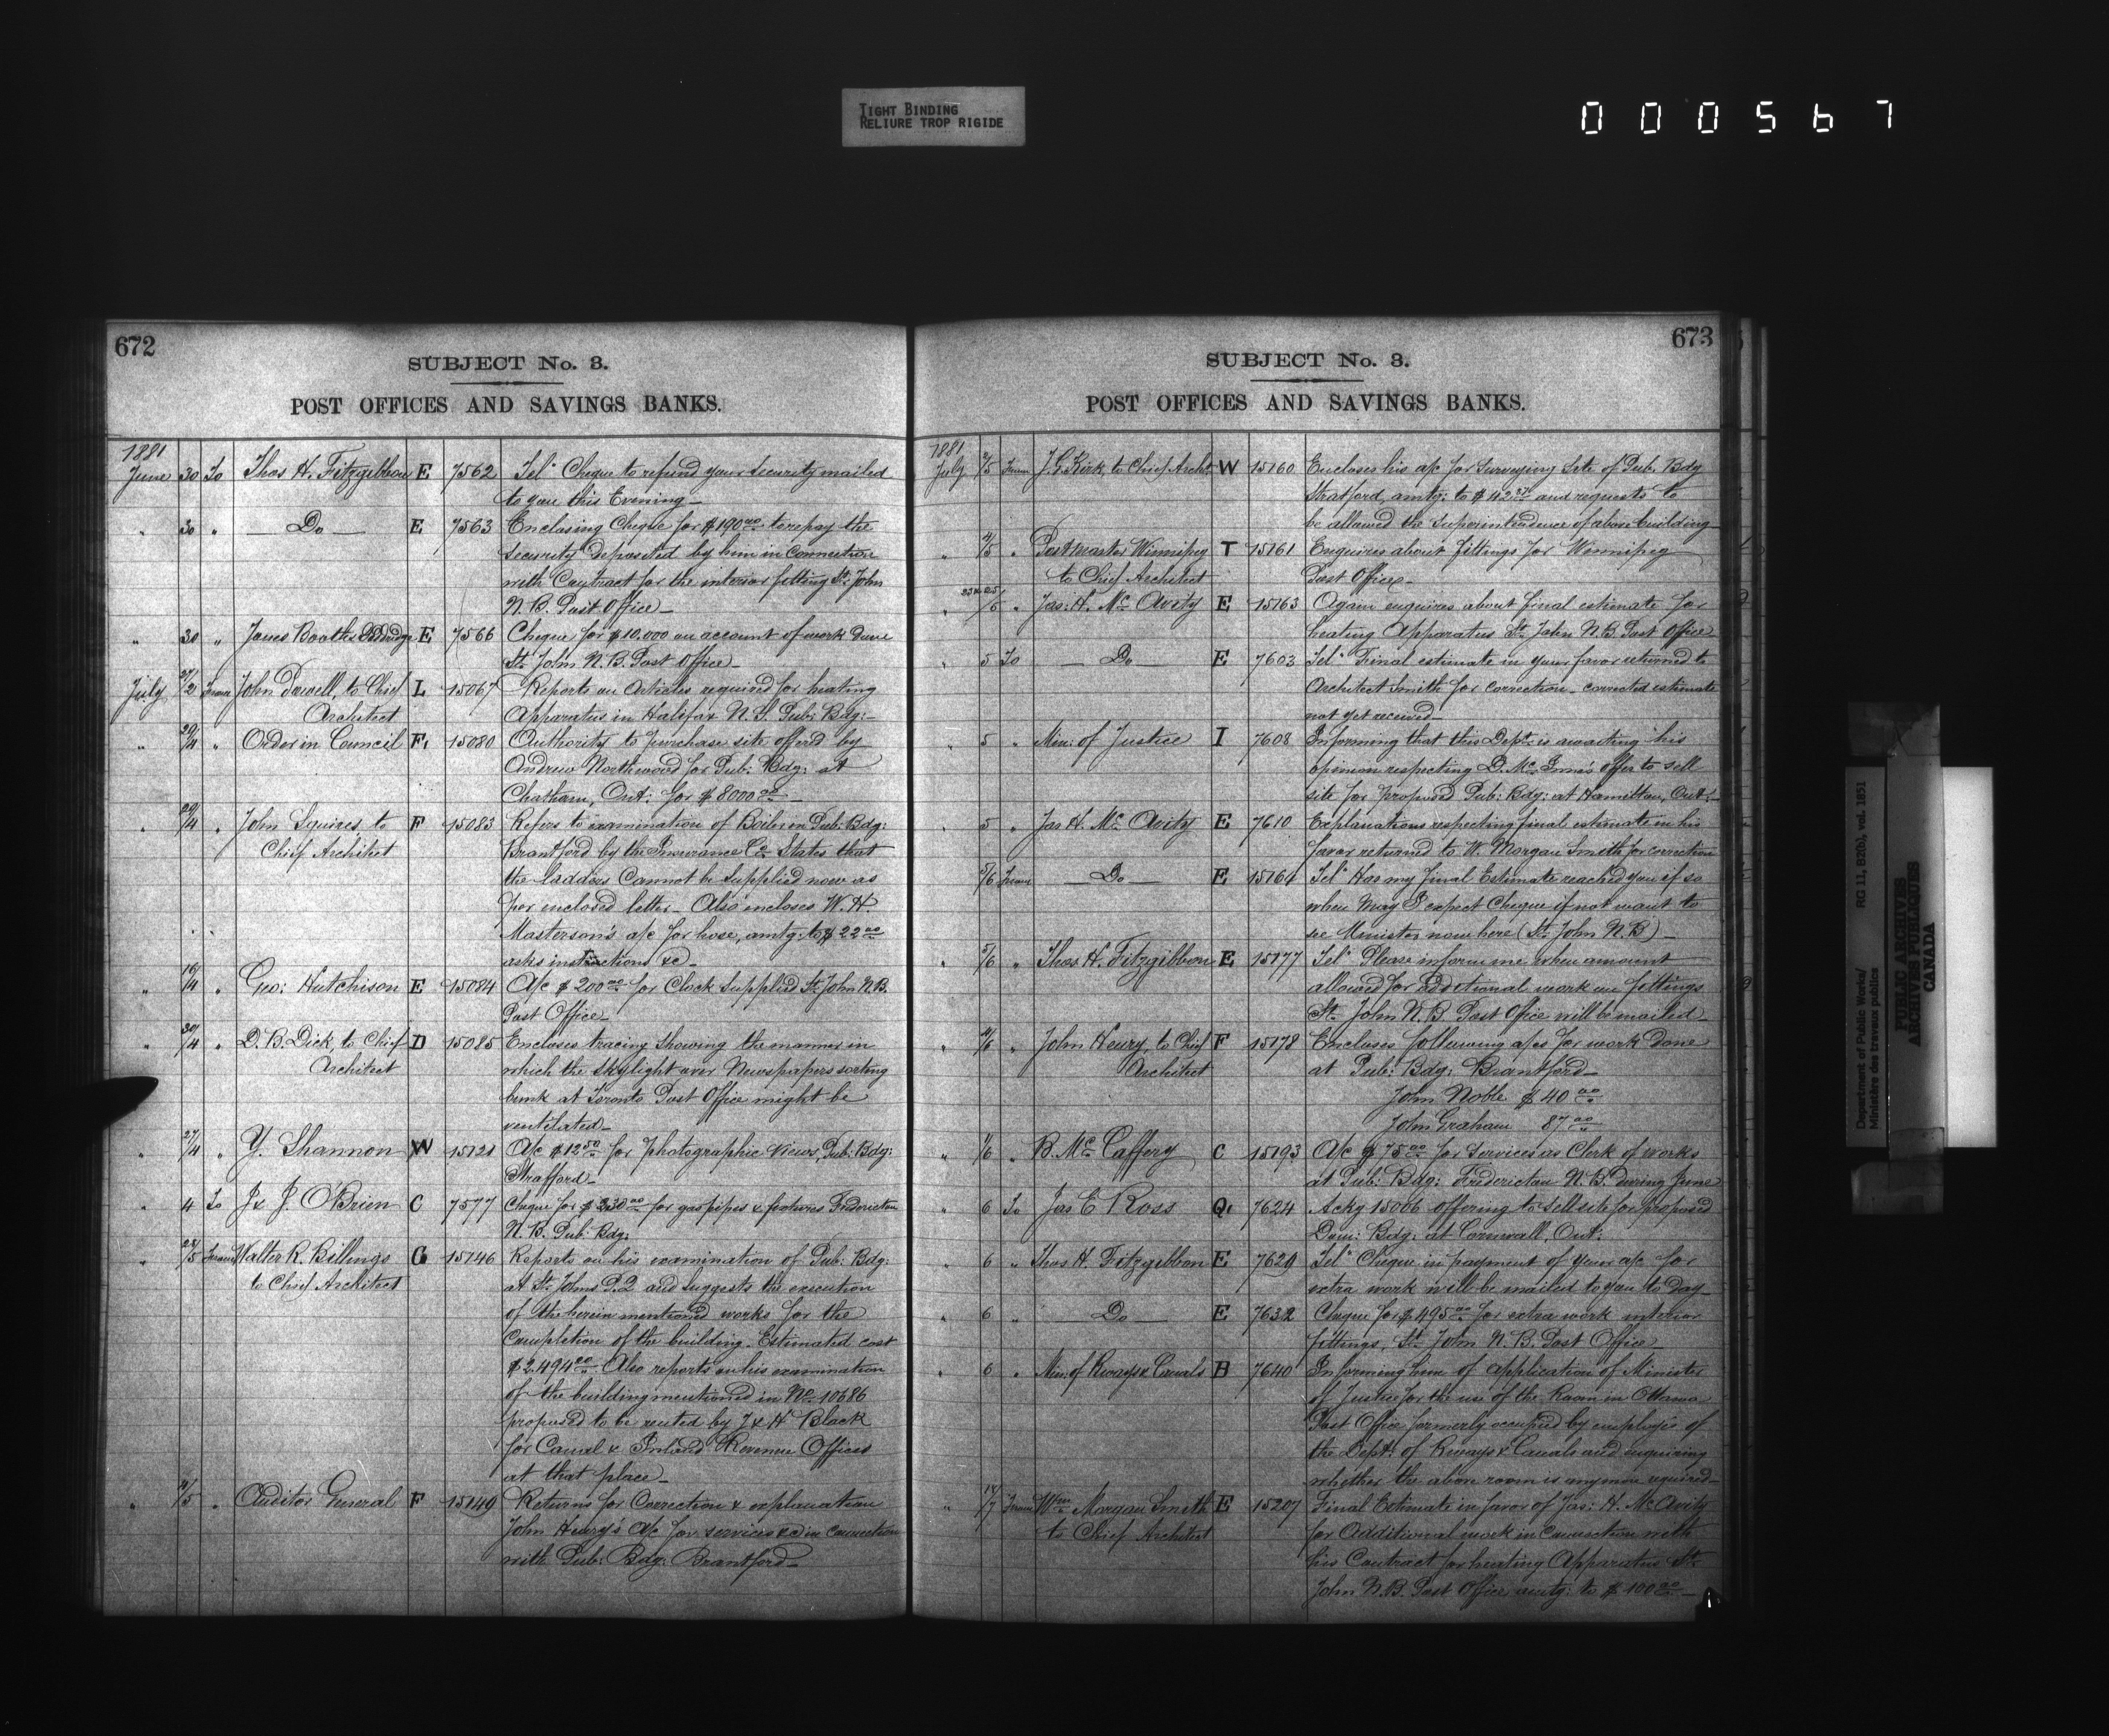 TIGHT BINDING
RELIURE TROP RIGIDE
000567
672
SUBJECT No. 3.
POST OFFICES AND SAVINGS BANKS.
1881
June 30 To Thos H. Fitzgibbon E 7562 Tel. Cheque to refund your security mailed
to you this Evening_
" 30 " — Do — E 7563 Enclosing Cheque for $190.00 to repay the
security deposited by him in connection
with Contract for the interior fitting St. John
N.B. Post Office_
" 30 " Jones Booth & E 7566 Cheque for $10.000 on account of work done
St. John N.B. Post Office_
July 27/2 From John Dowell, to Chief L 15067 Reports on Articles required for heating
Architect Apparatus in Halifax N.S. Pub: Bdg:_
" 29/4 " Order in Council F, 15080 Authority to purchase site offered by
Andrew Northwood for Pub: Bdg: at
Chatham, Ont: for $8000.00_
" 29/4 " John Squires to F 15083 Refers to examination of Boiler in Pub: Bdg:
Chief Architect Brantford by the Insurance Co. States that
the ladders Cannot be supplied now as
per inclosed letter_ Also incloses W. H.
Masterson's a/c for hose, amtg: to $22.00
asks instructions &c_
" 16/4 " Geo: Hutchison E 15084 A/c $200.00 for Clock supplied St. John N.B.
Post Office_
" 30/4 " D. B. Dick, to Chief D 15085 Encloses tracing showing the manner in
Architect which the skylight over Newspapers sorting
bunk at Toronto Post Office might be
ventilated_
" 27/4 " Y. Shannon W 15121 A/c $12.50 for photographic views, Pub: Bdg:
Stratford_
" 4 To J & J. O'Brien C 7577 Cheque for $230.00 for gaspipes & fixtures Fredericton
N.B. Pub: Bdg:
" 28/5 From Walter R. Billings G 15146 Reports on his examination of Pub: Bdg:
to Chief Architect at St. Johns P.Q and suggests the execution
of the herein mentioned works for the
Completion of the building. Estimated cost
$2.494.00 Also reports on his examination
of the building mentioned in No. 10686
proposed to be rented by J & H Black
for Canal & Inland Revenue Offices
at that place_
" 4/5 " Auditor General F 15149 Returns for Correction & explanation
John Henry's A/c for services &c in connection
with Pub: Bdg: Brantford_
673
SUBJECT No. 3.
POST OFFICES AND SAVINGS BANKS.
1881
July 2/5 From J. G. Kirk, to Chief Archt. W 15160 Encloses his a/c for Surveying Site of Pub. Bdg
Stratford, amtg: to $42. and requests to
be allowed the Superintendence of above building
" 4/5 " Postmaster Winnipeg T 15161 Enquires about fittings for Winnipeg
to Chief Architect Post Office_
" /6 " Jas: H. McAvity E 15163 Again enquires about final estimate for
heating Apparatus St. John N.B. Post Office
" 5 To — Do — E 7603 Tel. Final estimate in your favor returned to
Architect Smith for correction_ corrected estimate
not yet received_
" 5 " Min: of Justice I 7608 Informing that this Dept. is awaiting his
opinion respecting D. McInnes offer to sell
site for proposed Pub: Bdg: at Hamilton, Ont:_
" 5 " Jas H. McAvity E 7610 Explanations respecting final estimate in his
favor returned to W. Morgan Smith for correction
5/6 From — Do — E 15161 Tel. Has my final Estimate reached you if so
when may I expect Cheque if not want to
see Minister now here (St. John N.B)_
" 5/6 " Thos H. Fitzgibbon E 15177 Tel. Please inform me when amount
allowed for additional work on fittings
St. John N.B. Post Office will be mailed_
" 4/6 " John Henry, to Chief F 15178 Encloses following a/cs for work done
Architect at Pub: Bdg: Brantford_
John Noble $40.00
John Graham 87.00
" 1/6 " B. McCaffery C 15193 A/c $75.00 for Services as Clerk of works
at Pub: Bdg: Fredericton N.B. during June
" 6 To Jas E Ross Q, 7624 Ackg 15066 offering to sell site for proposed
Dom: Bdg: at Cornwall, Ont:
" 6 " Thos H. Fitzgibbon E 7629 Tel. Cheque in payment of your a/c for
extra work will be mailed to you to day_
" 6 — Do — E 7632 Cheque for $495.00 for extra work interior
fittings, St. John N.B. Post Office_
" 6 " Min: of Rways & Canals B 7640 Informing him of application of Minister
of Justice for the use of the Room in Ottawa
Post Office formerly occupied by employés of
the Dept. of Rways & Canals and enquiring
whether the above room is anymore required_
" 14/7 From Wm Morgan Smith E 15207 Final Estimate in favor of Jas: H. McAvity
to Chief Architect for Additional work in Connection with
his Contract for heating Apparatus St.
John N.B. Post Office amtg: to $100.00_
Department of Public Works/
Ministère des travaux publics
RG 11, B2(b), vol. 1851
PUBLIC ARCHIVES
ARCHIVES PUBLIQUES
CANADA